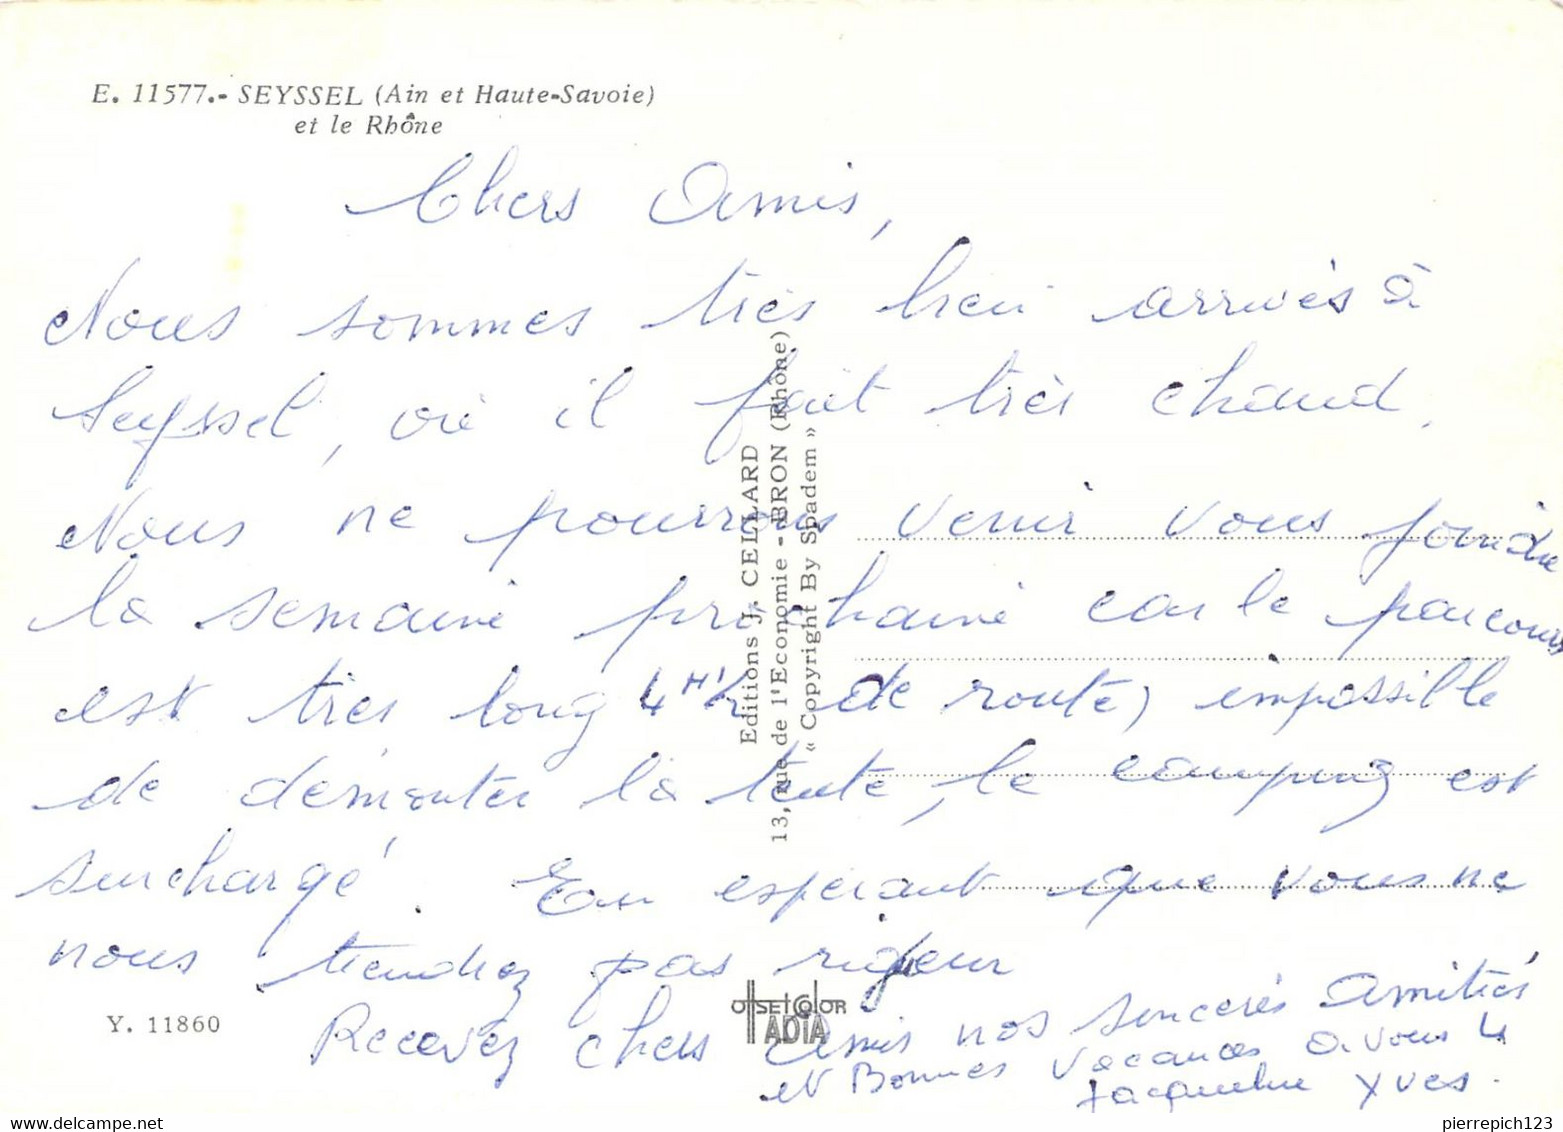 E. 11577.- SEYSSEL (Ain et Haute-Savoie)
et le Rhône
Chers Amis,
Nous sommes très bien arrivés à
Seyssel, où il fait très chaud.
Nous ne pourrons venir vous joindre
la semaine prochaine car le parcours
est très long 4H½ de route, impossible
de démonter la tente, le camping est
surchargé. En espérant que vous ne
nous tiendrez pas rigueur
Recevez chers Amis nos sincères Amitiés
et Bonnes Vacances à vous 4
Jacqueline Yves.
Editions J. CELLARD
13, rue de l'Economie - BRON (Rhône)
« Copyright By Spadem »
OffSETCOlOR
ADIA
Y. 11860
pierrepich123